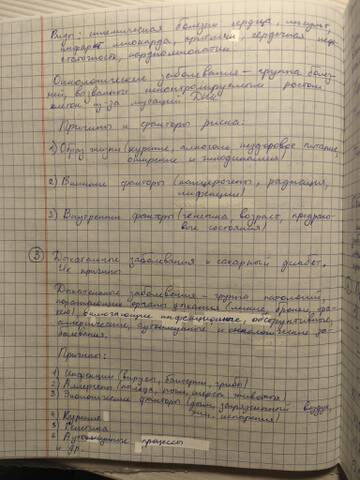 Виды: ишемическая болезнь сердца, инсульт,
инфаркт миокарда, аритмии, сердечная недо-
статочность, кардиомиопатии.
Онкологические заболевания - группа болез-
ней, вызванные неконтролируемым ростом
клеток из-за мутаций ДНК
Причины и факторы риска:
1) Образ жизни (курение, алкоголь, нездоровое питание,
ожирение и гиподинамия)
2) Внешние факторы (канцерогены, радиация,
инфекции)
3) Внутренние факторы (генетика, возраст, предрако-
вые состояния)
③ заболевания и сахарный диабет.
Их причины.
заболевания - группа патологий,
органы дыхания (легкие, бронхи,
включающие инфекционные, обструктивные,
аллергические, аутоиммунные и онкологические за-
болевания.
Причины:
1) Инфекции (вирусы, бактерии, грибы)
2) Аллергены (пыльца, пыль, шерсть животных)
3) Экологические факторы (дым, загрязнённый воздух,
испарения)
4) Курение
5) Генетика
6) Аутоиммунные процессы
и др.